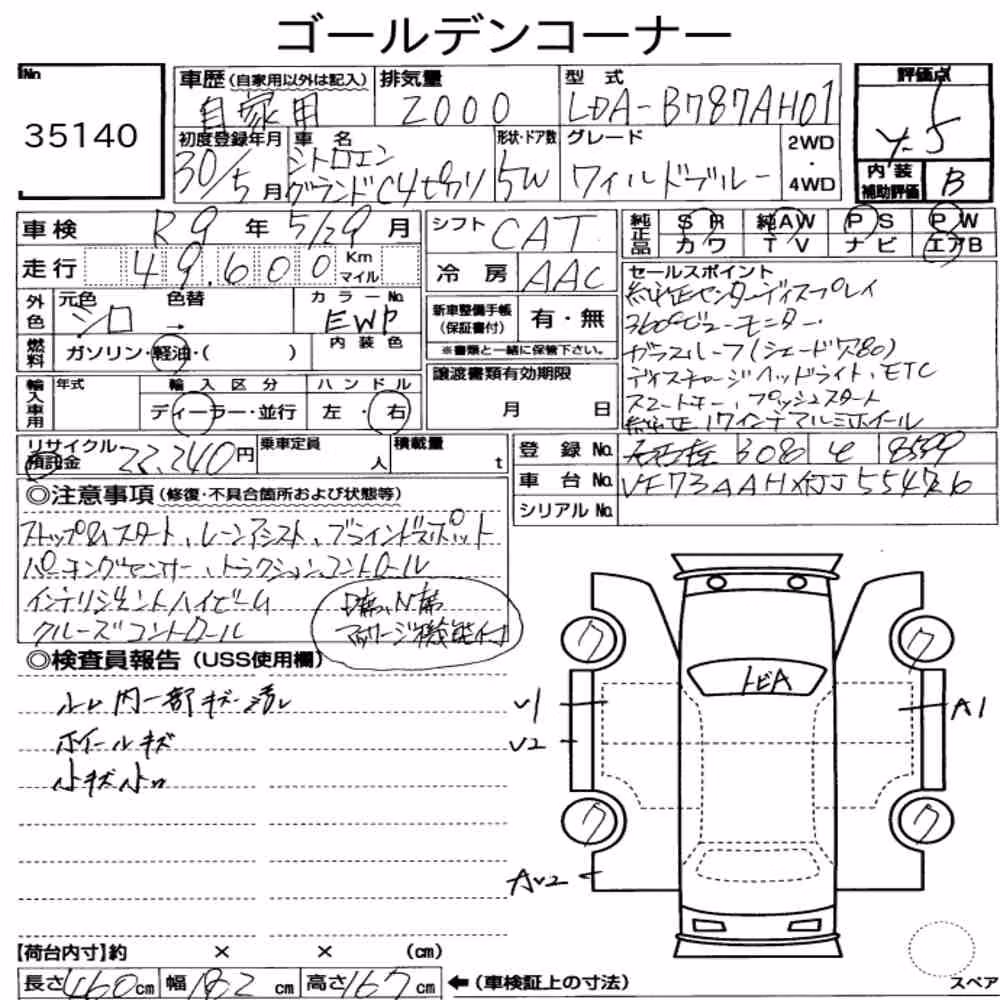 ゴールデンコーナー
No
35140
車歴 (自家用以外は記入)
自家用
排気量
2000
型式
LDA-B787AH01
評価点
初度登録年月
30/5月
車名
シトロエン
グランドC4ピカソ
形状・ドア数
5W
グレード
ワイルドブルー
2WD
・
4WD
内装
補助評価
B
車検 R9年 5/29月
走行 49,600 Km マイル
外色
元色
シロ
色替
→
カラーNo.
EWP
燃料
ガソリン・軽油・( )
内装色
輸入車用
年式
輸入区分
ディーラー・並行
ハンドル
左・右
シフト CAT
冷房 AAC
新車整備手帳
(保証書付)
有・無
※書類と一緒に保管下さい。
譲渡書類有効期限
月 日
純正品
SR 純AW PS PW
カワ TV ナビ エアB
セールスポイント
純正センターディスプレイ
360°ビューモニター
ガラスルーフ(シェード穴80)
ディスチャージヘッドライト、ETC
スマートキー、プッシュスタート
純正17インチアルミホイール
リサイクル
預託金
22,240円
乗車定員
人
積載量
t
登録No. 308 8599
車台No.
シリアルNo.
◎注意事項 (修復・不具合箇所および状態等)
ストップ&スタート、レーンアシスト、ブラインドスポット
パーキングセンサー、トラクションコントロール
インテリジェントハイビーム
クルーズコントロール
D席、N席
マッサージ機能付
◎検査員報告 (USS使用欄)
ルーム内一部キズ・汚れ
ホイールキズ
小キズ小凹
トビA
ワ
ワ
ワ
ワ
V1
V2
A1
AV2
【荷台内寸】約 × × (cm)
長さ460cm 幅182cm 高さ167cm
←(車検証上の寸法)
スペア